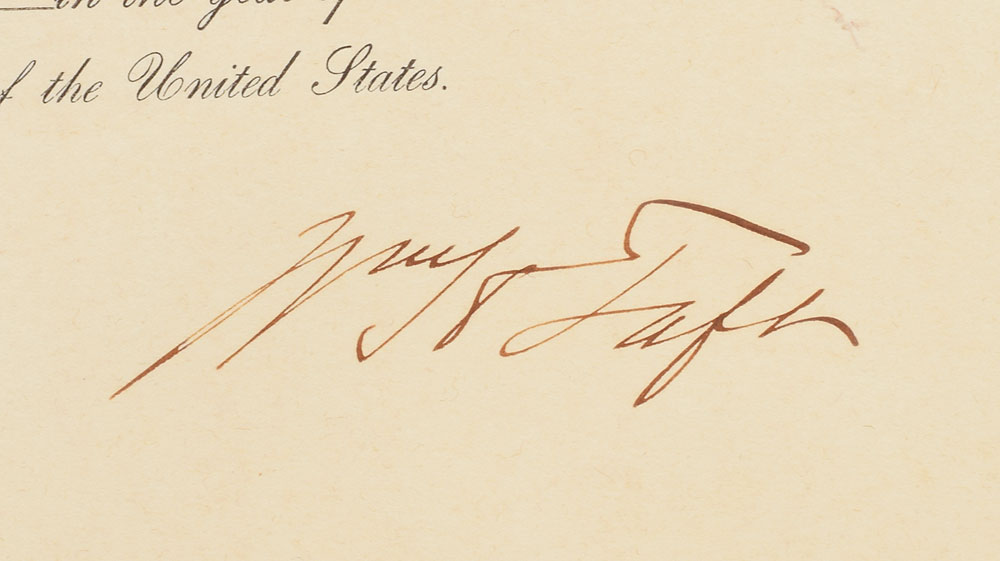 in the year of
of the United States.
Wm H Taft